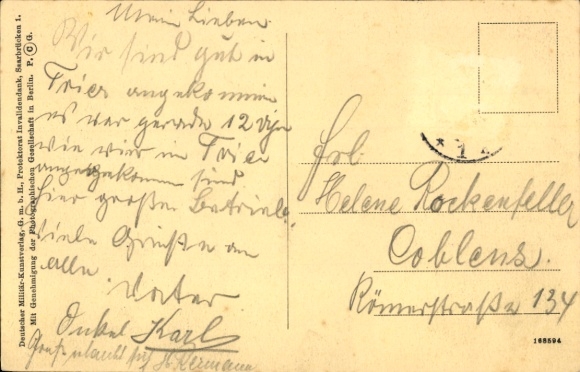 Mein Lieben.
Wir sind gut in
Trier angekommen
es war gerade 12 Uhr
wie wir in Trier
angekommen sind
hier großer
viele Grüße an
alle
Vater
Onkel Karl
Frl.
Helene Rockenfeller
Coblenz.
Römerstraße 134
168594
Deutscher Militär-Kunstverlag, G. m. b. H., Protektorat Invalidendank, Saarbrücken 1.
Mit Genehmigung der Photographischen Gesellschaft in Berlin. P. C G.